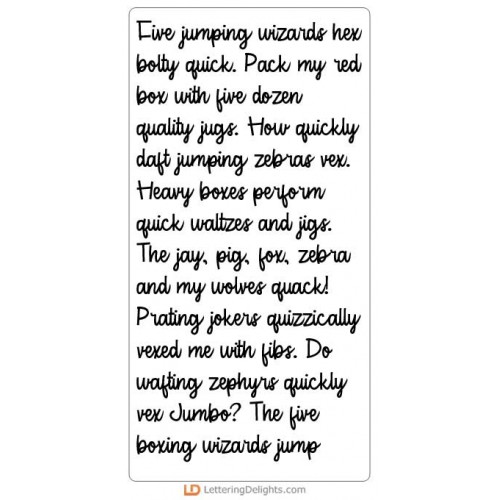 Five jumping wizards hex
bolty quick. Pack my red
box with five dozen
quality jugs. How quickly
daft jumping zebras vex.
Heavy boxes perform
quick waltzes and jigs.
The jay, pig, fox, zebra
and my wolves quack!
Prating jokers quizzically
vexed me with fibs. Do
wafting zephyrs quickly
vex Jumbo? The five
boxing wizards jump
LD LetteringDelights.com